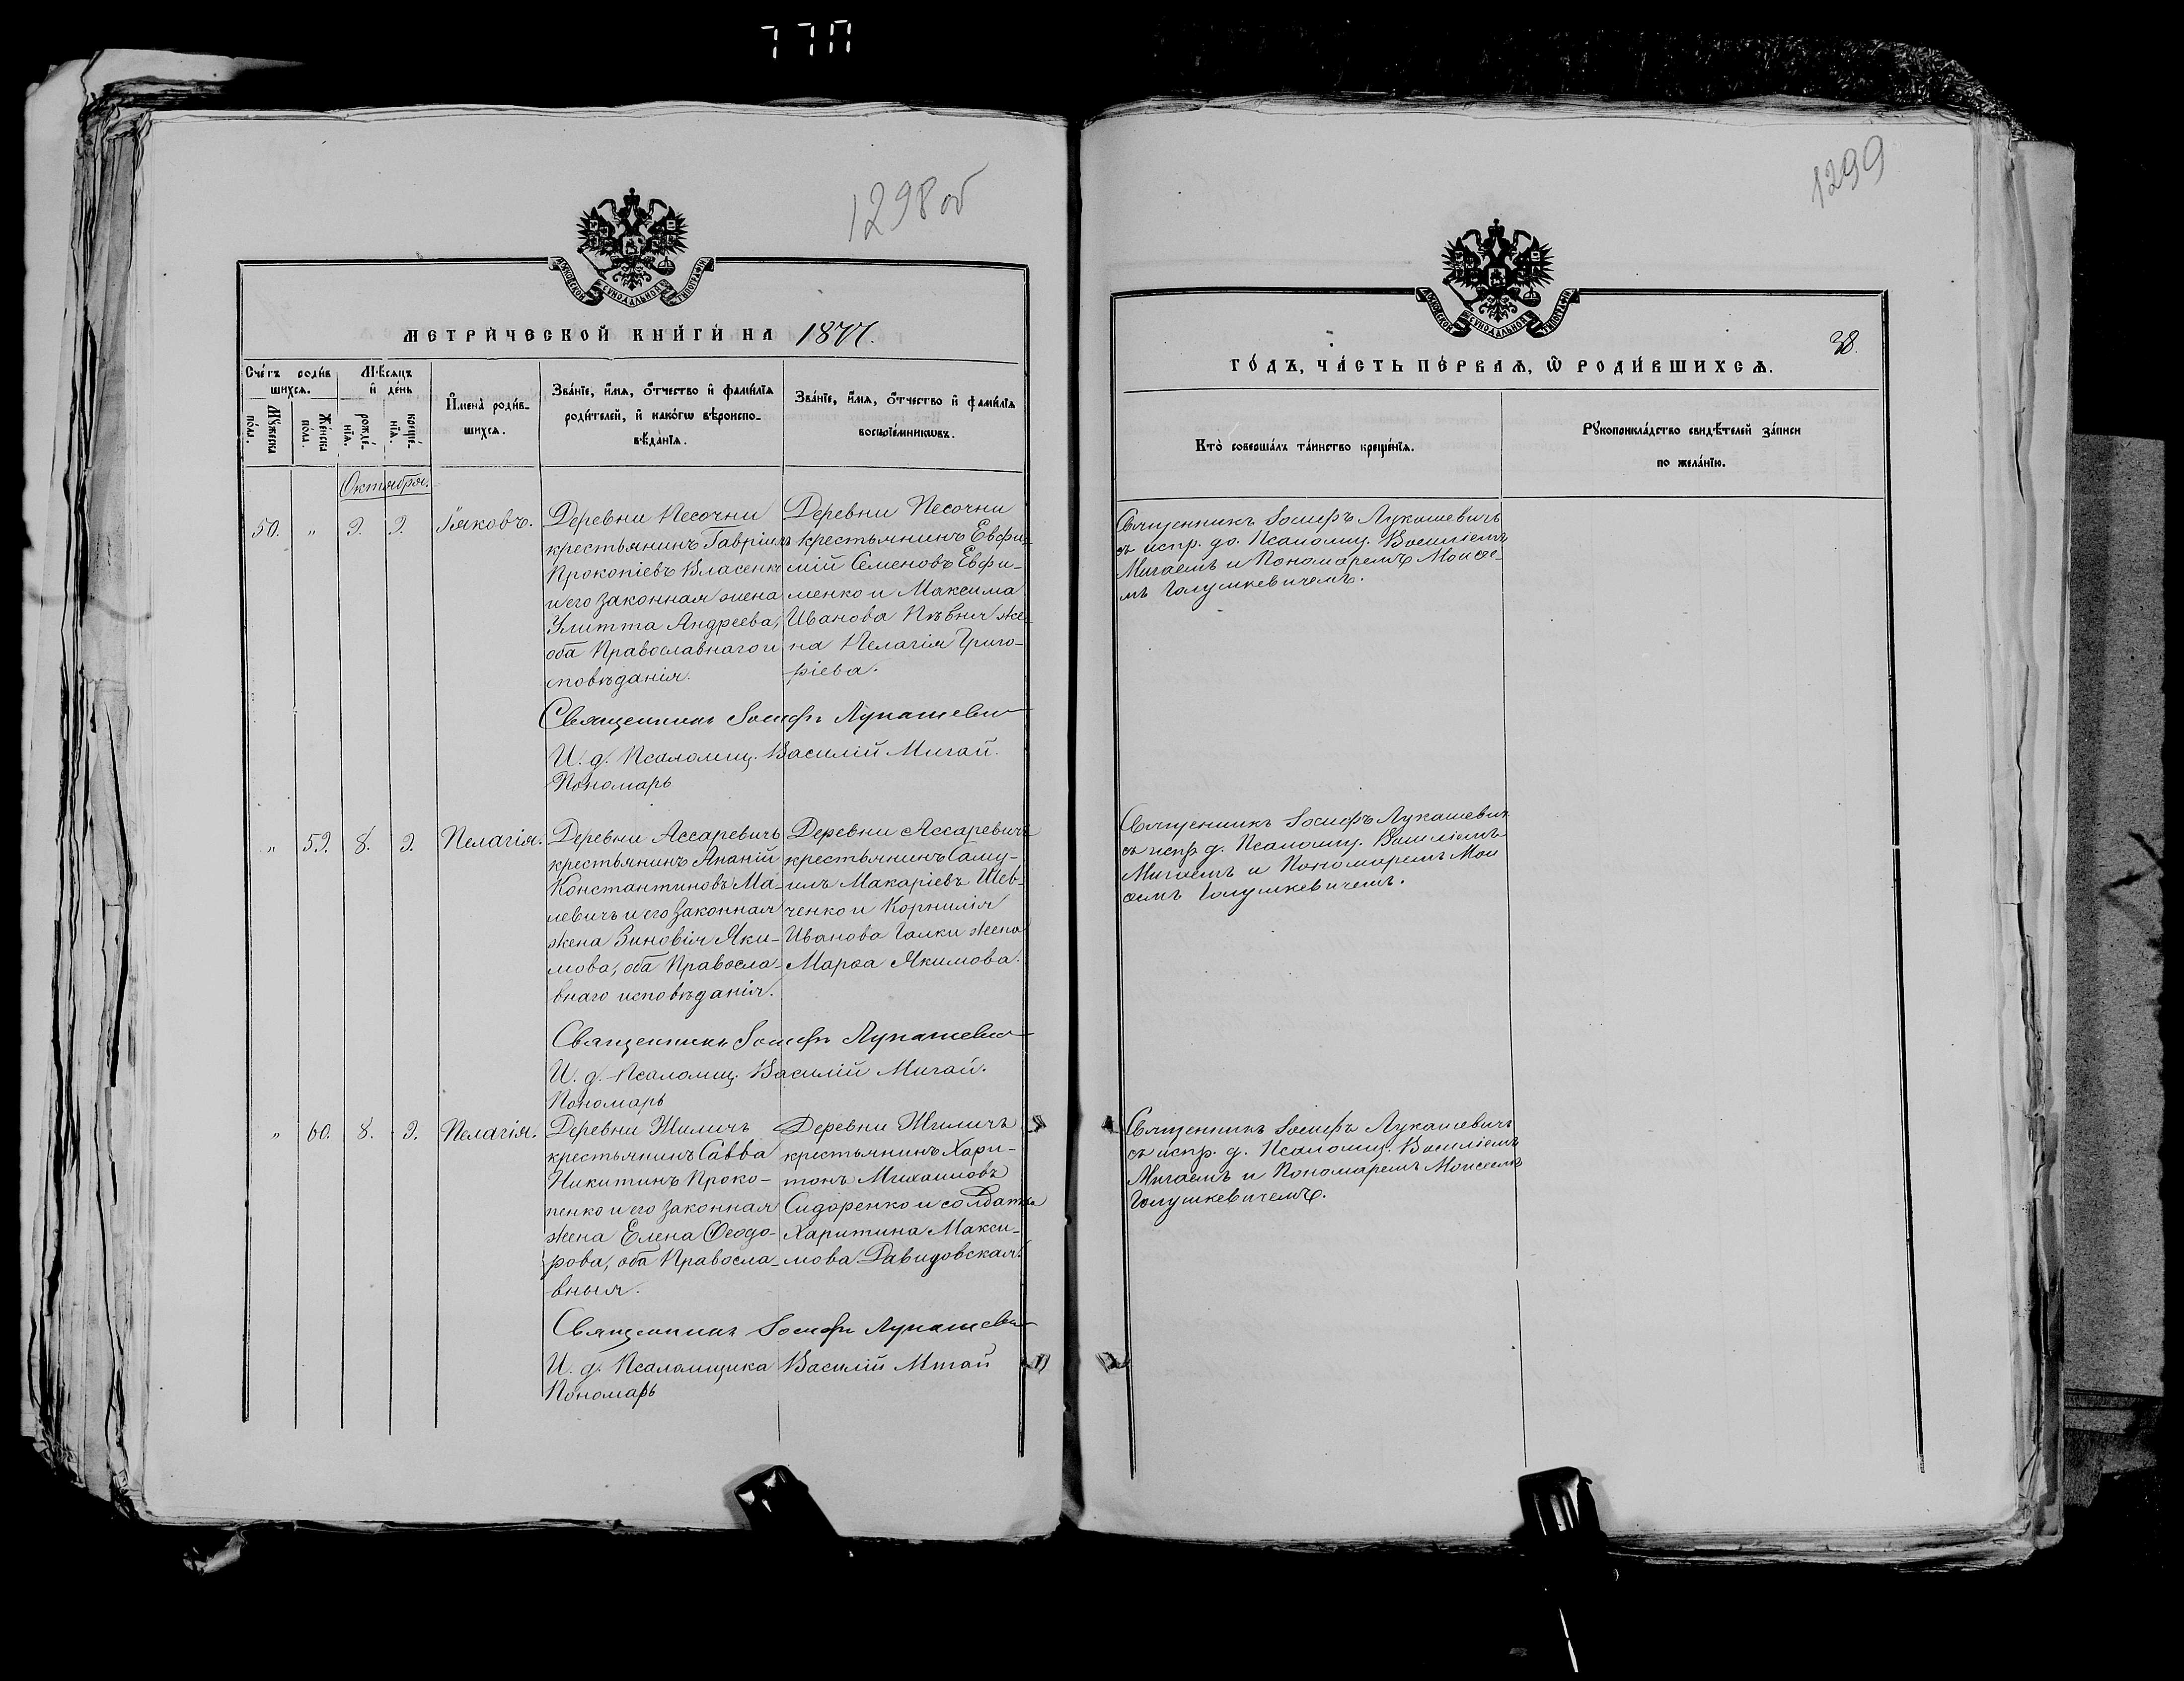 1298 об
МОСКОВСКОЙ СѴНОДАЛЬНОЙ ТИПОГРАФІИ
МЕТРИ́ЧЕСКОЙ КНИ́ГИ НА 1877.
Сче́тъ роди́вшихсѧ.
Мѹ́жеска по́ла.
Же́нска по́ла.
Мѣ́сяцъ и҆ де́нь
рожде́нїѧ.
креще́нїѧ.
И҆мена̀ роди́вшихсѧ.
Зва́нїе, и҆́мѧ, ѻ҆́тчество и҆ фами́лїѧ
роди́телей, и҆ како́гѡ вѣроиспо-
вѣ́данїѧ.
Зва́нїе, и҆́мѧ, ѻ҆́тчество и҆ фами́лїѧ
воспрїе́мникѡвъ.
Октября.
50. " 9. 9. Іяковъ.
Деревни Песочни
крестьянинъ Гавріилъ
Прокопіевъ Власенко
и его законная жена
Улитта Андреева,
оба Православнаго и
сповѣданія.
Деревни Песочни
крестьянинъ Евфи-
мій Семеновъ Евфи-
менко и Максима
Иванова Пѣвня же-
на Пелагія Григо-
ріева.
Священникъ Іосифъ Лукашевичъ
И. д. Псаломщ. Василій Мигай.
Пономарь
" 59. 8. 9. Пелагія.
Деревни Ассаревичъ
крестьянинъ Ананій
Константиновъ Ма-
левичъ и его законная
жена Зиновія Яки-
мова, оба Правосла-
внаго исповѣданія.
Деревни Ассаревичъ
крестьянинъ Саму-
илъ Макаріевъ Шев-
ченко и Корнилія
Иванова Галки жена
Марѳа Якимова.
Священникъ Іосифъ Лукашевичъ
И. д. Псаломщ. Василій Мигай.
Пономарь
" 60. 8. 9. Пелагія.
Деревни Жиличъ
крестьянинъ Савва
Никитинъ Проко-
пенко и его законная
жена Елена Ѳеодо-
рова, оба Правосла-
вныя.
Деревни Жиличъ
крестьянинъ Хари-
тонъ Михаиловъ
Сидоренко и солдатка
Харитина Макси-
мова Давидовская.
Священникъ Іосифъ Лукашевичъ
И. д. Псаломщика Василій Мигай
Пономарь
1299
МОСКОВСКОЙ СѴНОДАЛЬНОЙ ТИПОГРАФІИ
38.
ГО́ДЪ, ЧА́СТЬ ПЕ́РВАѦ, Ѡ҆ РОДИ́ВШИХСѦ.
Кто̀ соверша́лъ та́инство креще́нїѧ.
Рѹкоприкла́дство свидѣ́телей за́писи
по жела́нїю.
Священникъ Іосифъ Лукашевичъ
съ испр. до. Псаломщ. Василіемъ
Мигаемъ и Пономаремъ Моисее-
мъ Галушкевичемъ.
Священникъ Іосифъ Лукашевичъ
съ испр. д. Псаломщ. Василіемъ
Мигаемъ и Пономаремъ Мои
сеемъ Галушкевичемъ.
Священникъ Іосифъ Лукашевичъ
съ испр. д. Псаломщ. Василіемъ
Мигаемъ и Пономаремъ Моисеемъ
Галушкевичемъ.